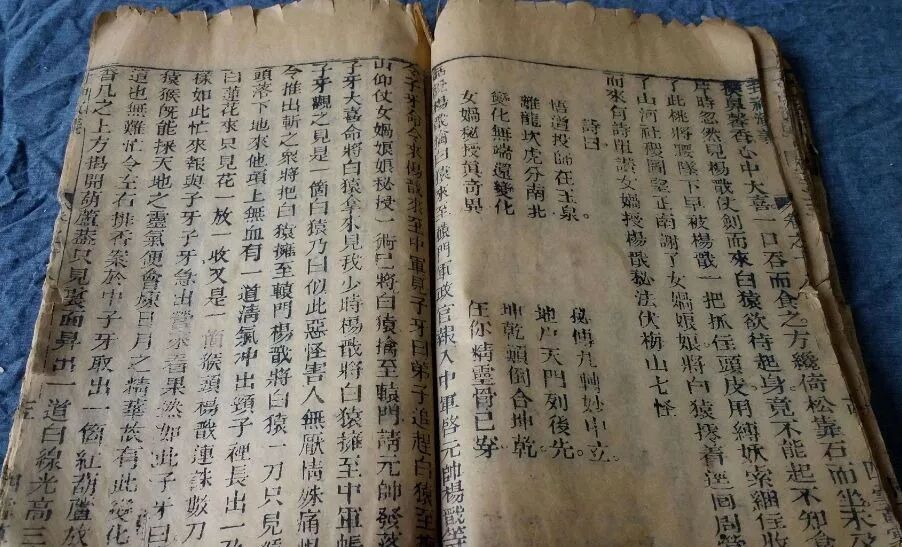 撲鼻馨香心中大喜一口吞而食之方纔倚松靠石而坐未及
片時忽然見楊戩仗劍而來白猿欲待起身竟不能起不知食
了此桃將腰墜下早被楊戩一把抓住頭皮用縛妖索綑住收
了山河社稷圖望正南謝了女媧娘娘將白猿拎著逕回周營
而來有詩單讚女媧授楊戩秘法伏梅山七怪
詩曰
悟道投師在玉泉。 秘傳九轉妙中玄。
離龍坎虎分南北 地戶天門列後先。
變化無端還變化 坤乾顛倒合坤乾。
女媧秘授眞奇異 任你精靈骨已穿
話說楊戩擒白猿來至轅門軍政官報入中軍啓元帥楊戩等
令子牙命令來楊戩來至中軍見子牙曰弟子追趕白猿至
山仰仗女媧娘娘秘授一術已將白猿擒至轅門請元帥發落
子牙大喜命將白猿拿來見我少時楊戩將白猿擁至中軍帳
子牙觀之見是一箇白猿乃曰似此惡怪害人無厭情殊痛恨
令推出斬之衆將把白猿擁至轅門楊戩將白猿一刀只見
頭落下地來他項上無血有一道清氣冲出頸子裡長出一
白蓮花來只見花一放一收又是一箇猴頭楊戩連誅數刀
樣如此忙來報與子牙子牙急出營來看果然如此子牙曰
猿猴既能採天地之靈氣便會煉日月之精華故有此變化
這也無難忙令左右排香案於中子牙取出一箇紅葫蘆放
香几之上方揭開葫蘆蓋只見裏面昇出一道白線光高三